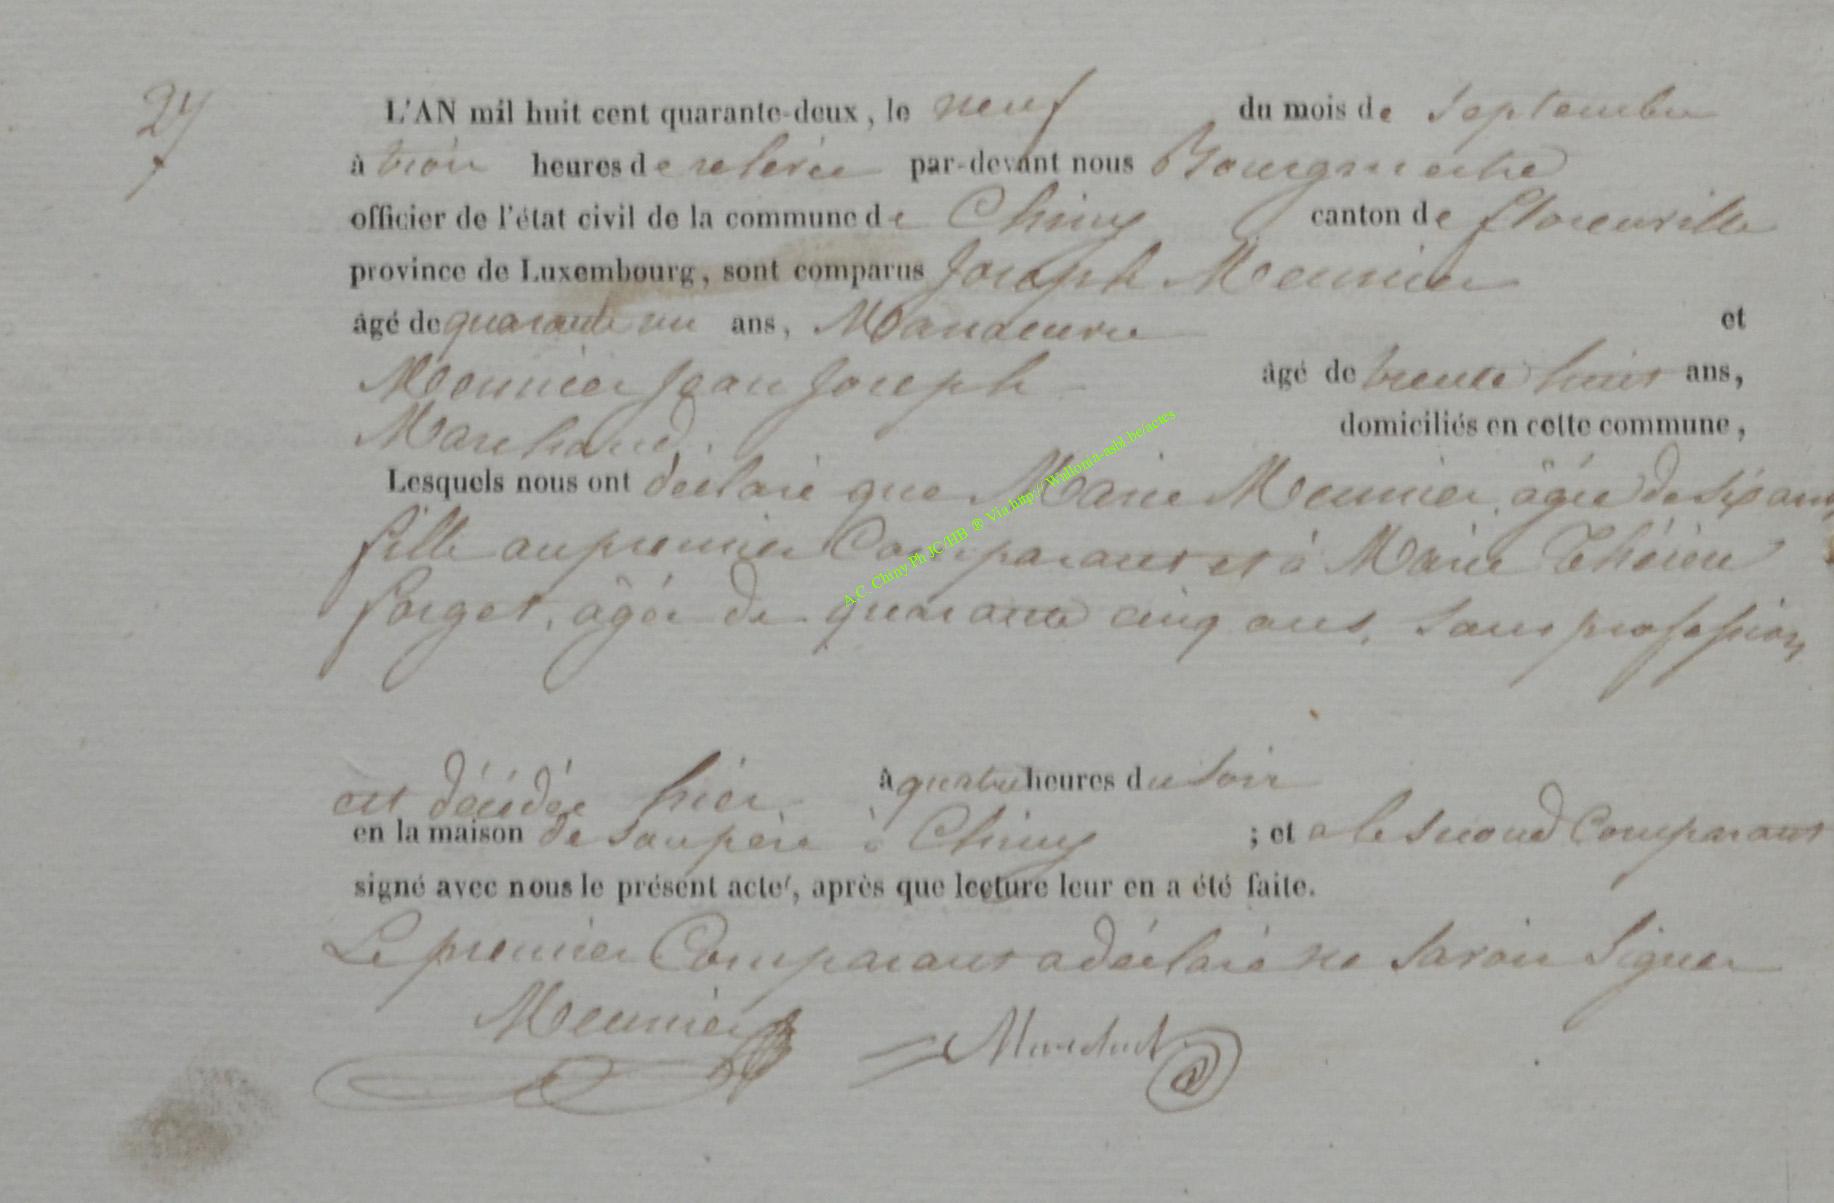 27
L'AN mil huit cent quarante-deux, le neuf du mois de Septembre
à trois heures de relevée par-devant nous Bourgmestre
officier de l'état civil de la commune de Chiny canton de florenville
province de Luxembourg, sont comparus Joseph Meunier
âgé de quarante un ans, Manoeuvre et
Meunier Jean Joseph âgé de trente huit ans,
Marchand, domiciliés en cette commune,
Lesquels nous ont déclaré que Marie Meunier, âgée de six ans,
fille au premier Comparant et à Marie Thérèse
forget, âgée de quarante cinq ans, sans profession,
est décédée hier à quatre heures du soir
en la maison de son père à Chiny ; et a le second Comparant
signé avec nous le présent acte, après que lecture leur en a été faite.
Le premier Comparant a déclaré ne savoir signer
Meunier
A.C. Chiny Ph JC/HB ® Via http://Wallonia-asbl.be/actes